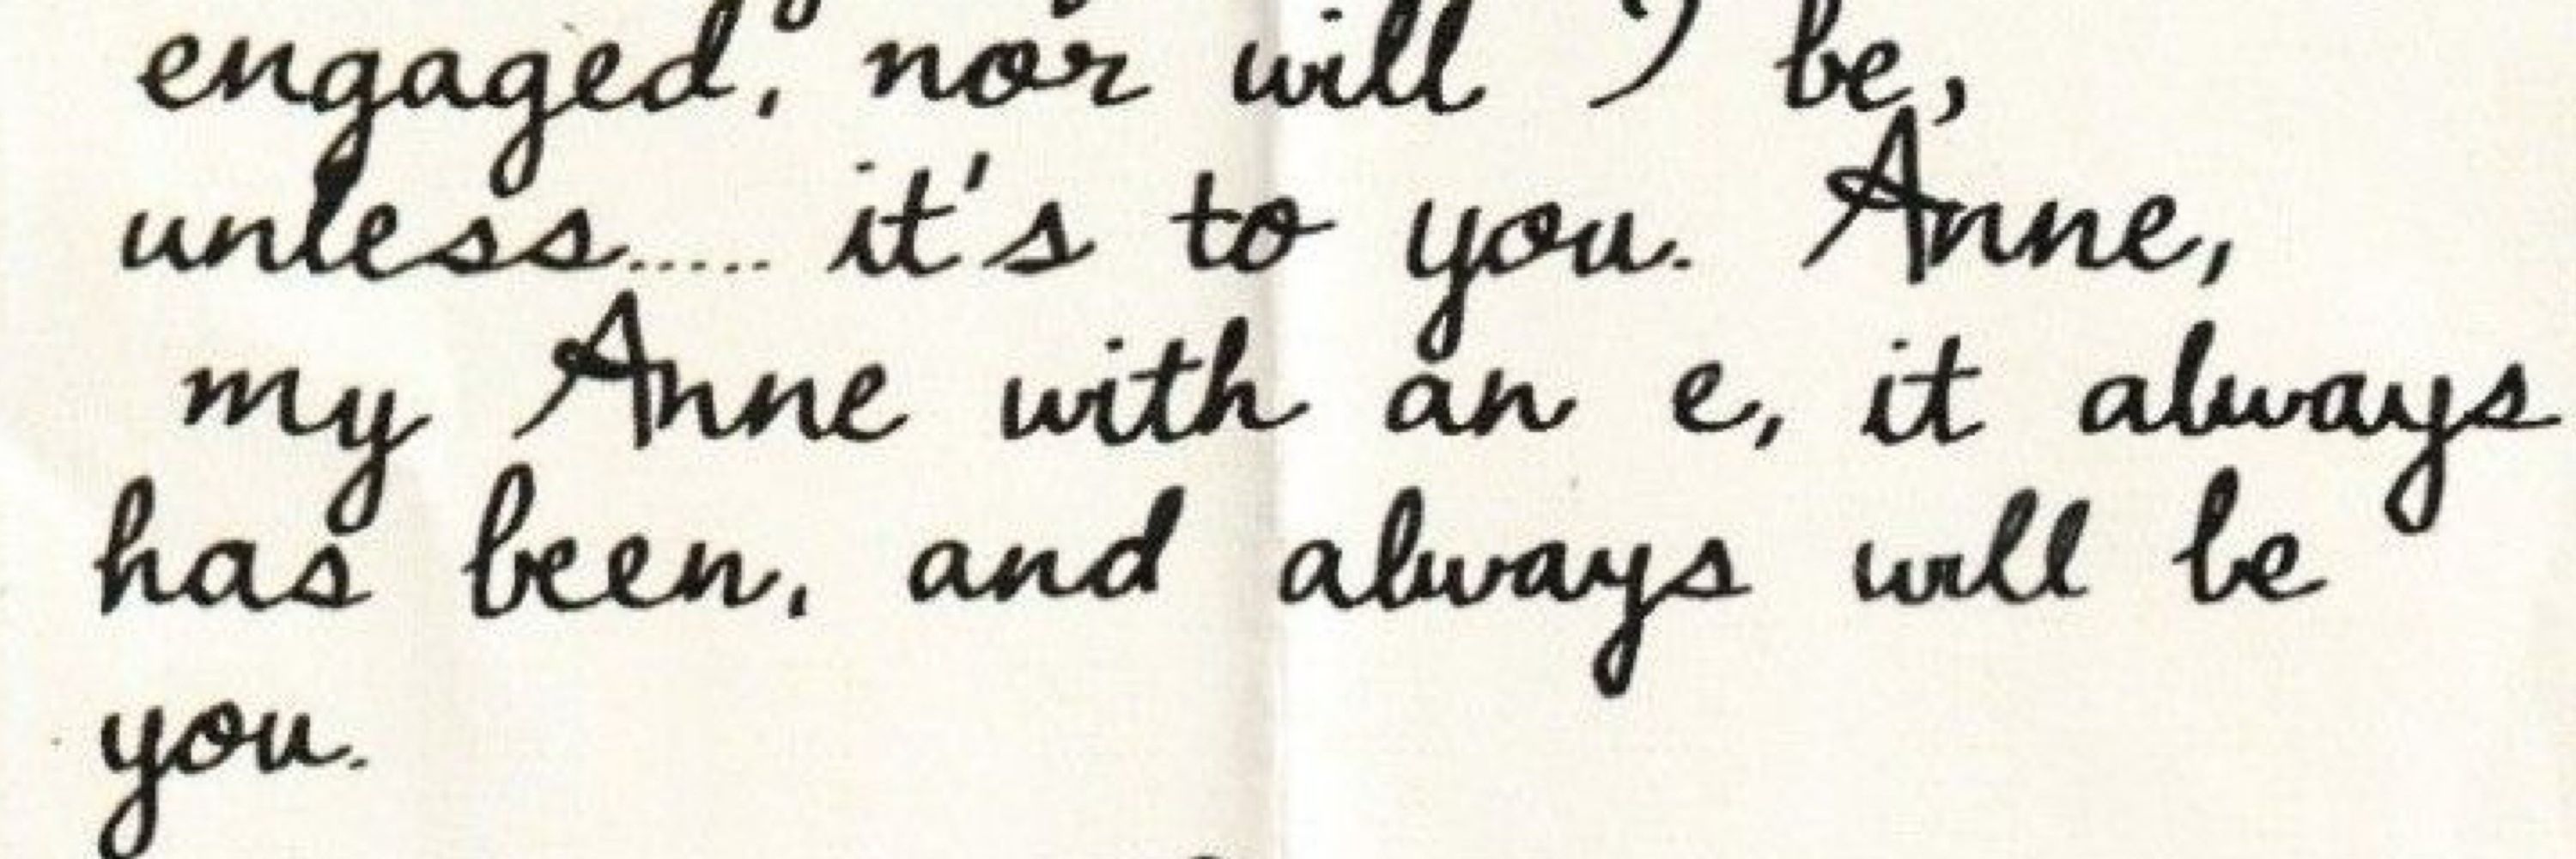 engaged, nor will I be,
unless..... it's to you. Anne,
my Anne with an e, it always
has been, and always will be
you.